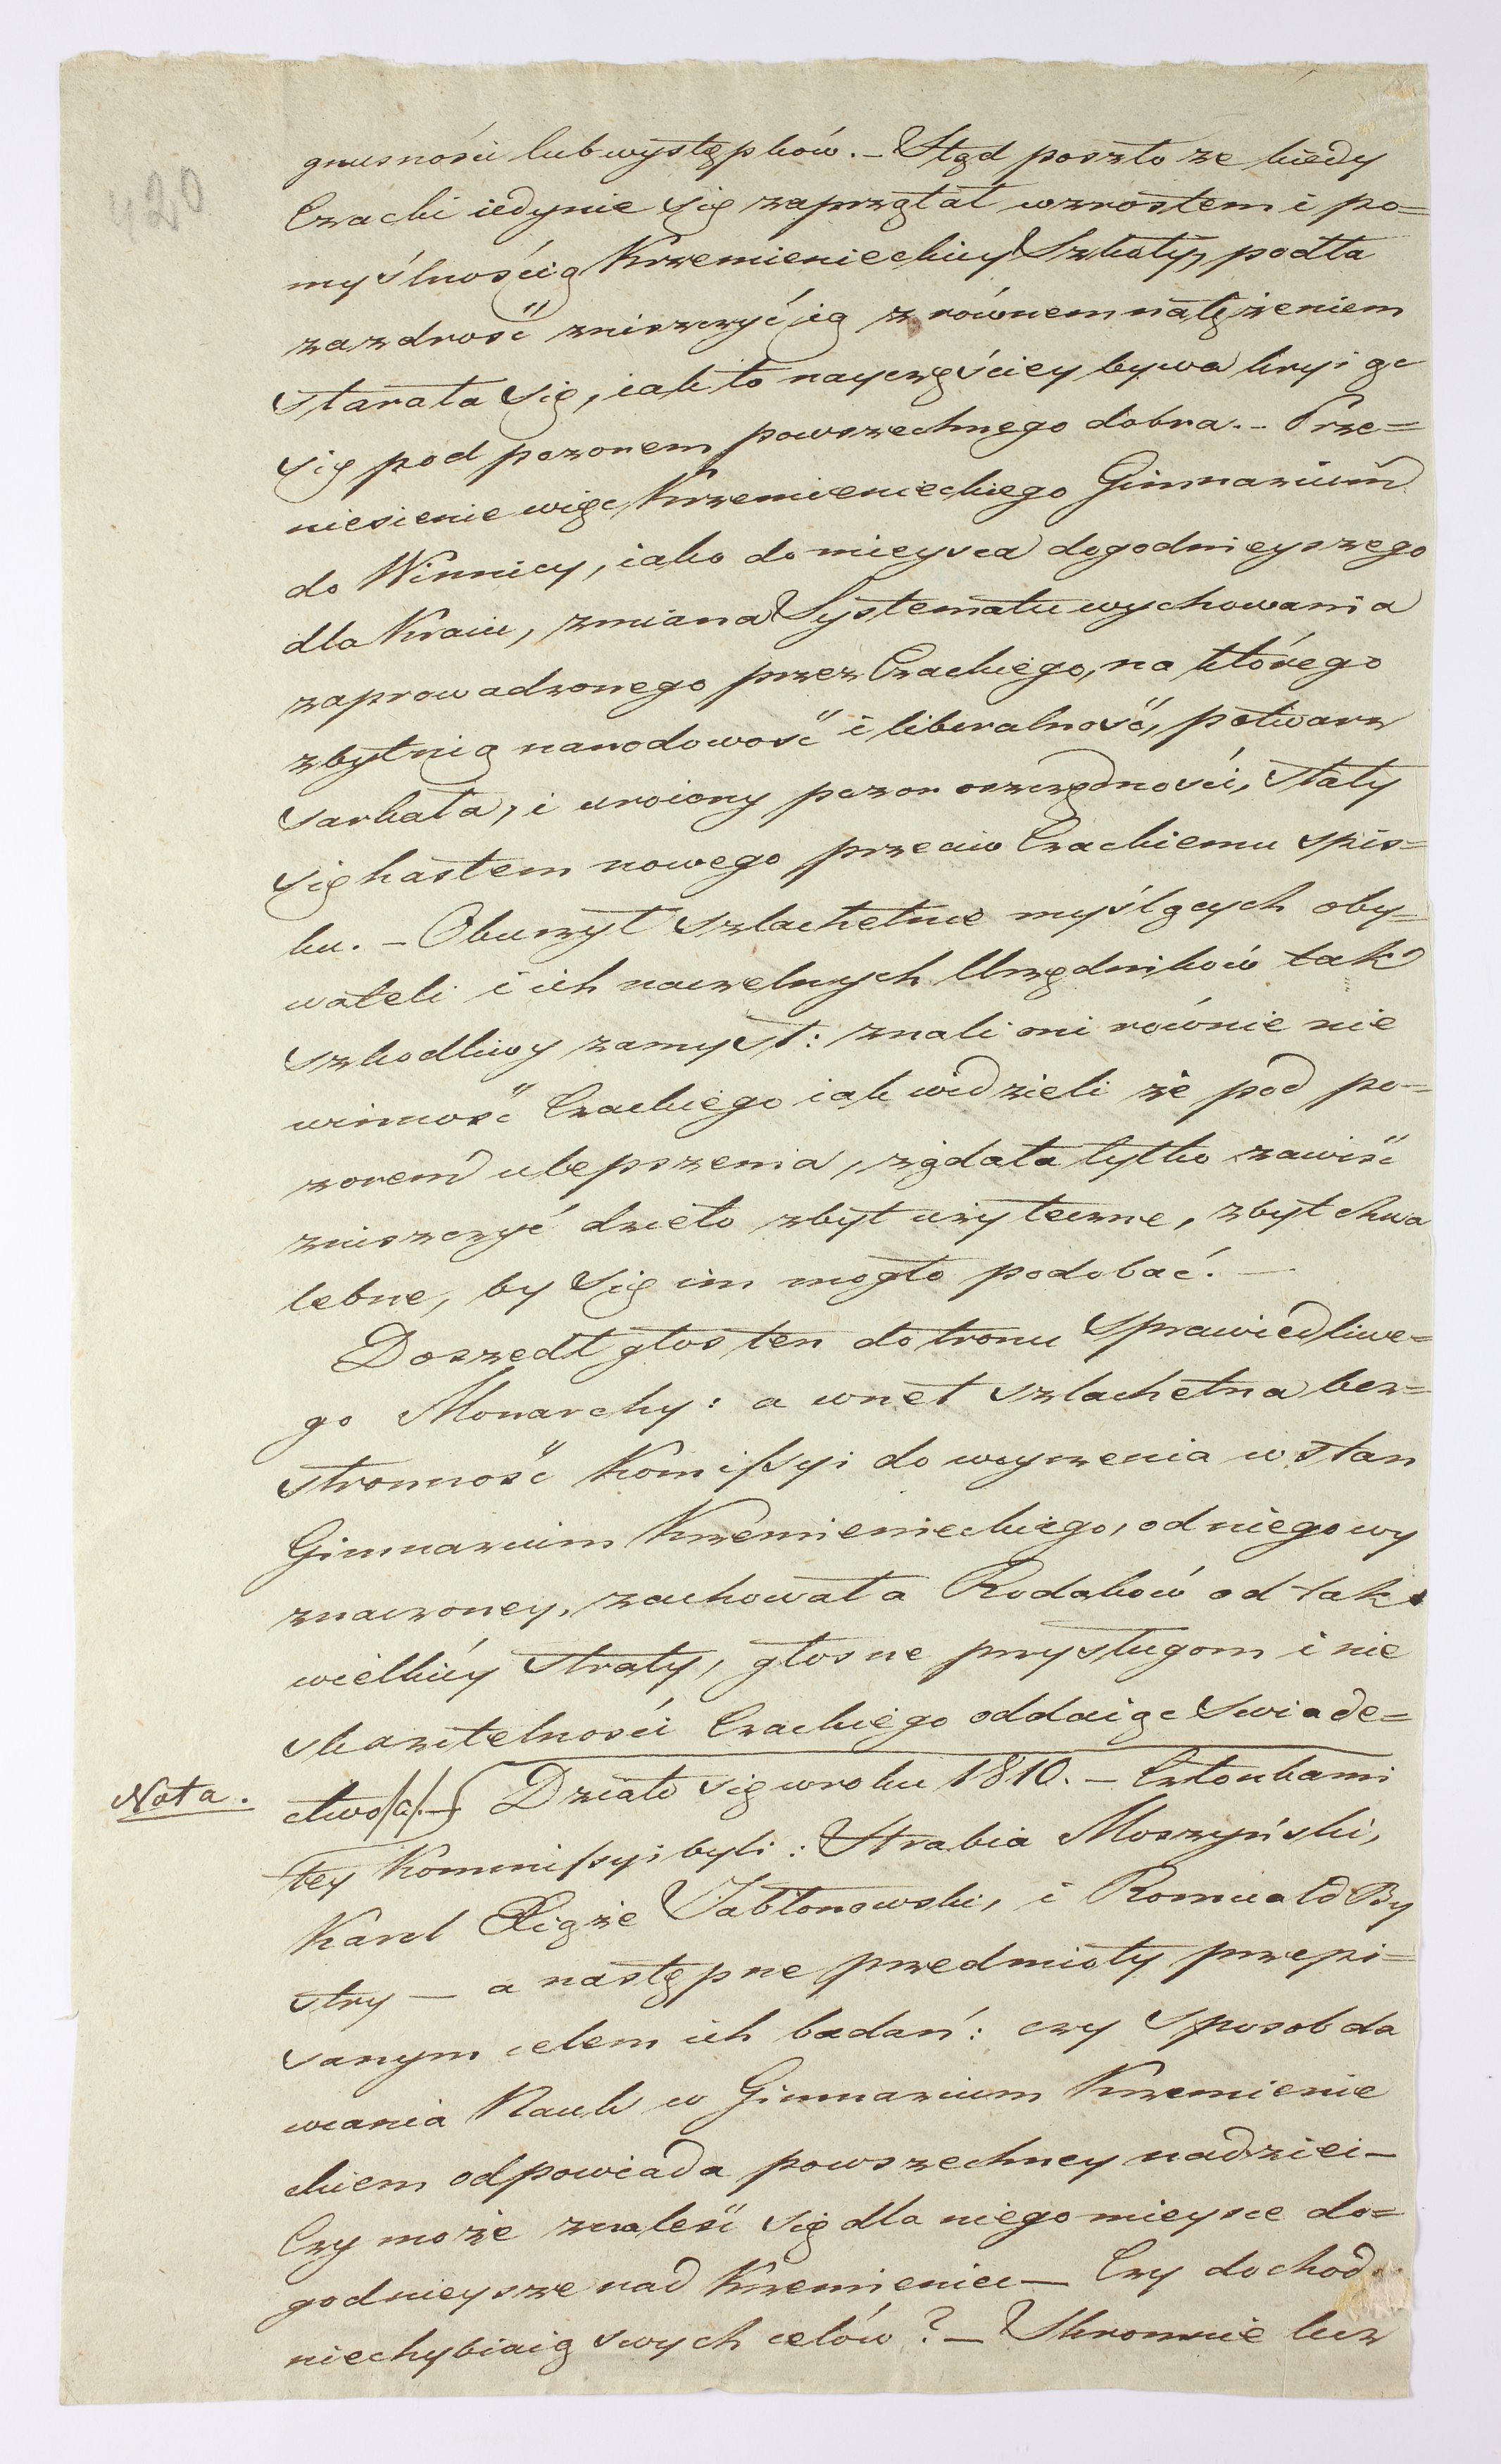 420
gnusności lub występków. – Stąd poszło ze kiedy
Czacki iedynie się zaprzątał wzrostem i po=
myślnością Krzemienieckiey Szkoły, podła
zazdrość zniszczyć ią z równem natężeniem
starała się, iak to nayczęściey bywa kryiąc
się pod pozorem powszechnego dobra. – Prze=
niesienie więc Krzemienieckiego Gimnazium
do Winnicy, iako do mieysca dogodnieyszego
dla Kraiu, zmiana Systematu wychowania
zaprowadzonego przez Czackiego, na którego
zbytnią narodowość i liberalność, potwarz
sarkała, i uroiony pozor oszczędności, stały
się hasłem nowego przeciw Czackiemu spis=
ku. – Oburzył szlachetnie myślących oby=
wateli i ich naczelnych Urzędników tak
szkodliwy zamysł: znali oni równie nie
winność Czackiego iak widzieli że pod po=
zorem ulepszenia, żądała tylko zawiść
zniszczyć dzieło zbyt użyteczne, zbyt chwa
lebne, by się im mogło podobać. –
Doszedł głos ten do tronu sprawiedliwe=
go Monarchy: a wnet szlachetna bez=
stronność Komissyi do weyrzenia w stan
Gimnazium Krzemienieckiego, od niego wy
znaczoney, zachowała Rodaków od tak
wielkiéy straty, głosne przysługom i nie
skazitelności Czackiego oddaiąc swiade=
Nota. ctwo/a/. – Działo się w roku 1810. – Członkami
tey Kommissyi byli: Hrabia Moszyński,
Karol Xiąże Jabłonowski, i Romuald By
stry – a następne przedmioty przepi=
sanym celem ich badań: czy sposob da
wania Nauk w Gimnazium Krzemienie
ckiem odpowiada powszechney nadziei –
Czy może znaleść się dla niego mieysce do=
godnieysze nad Krzemieniec – Czy dochod
niechybiaią swych celów? – Skromnie lecz